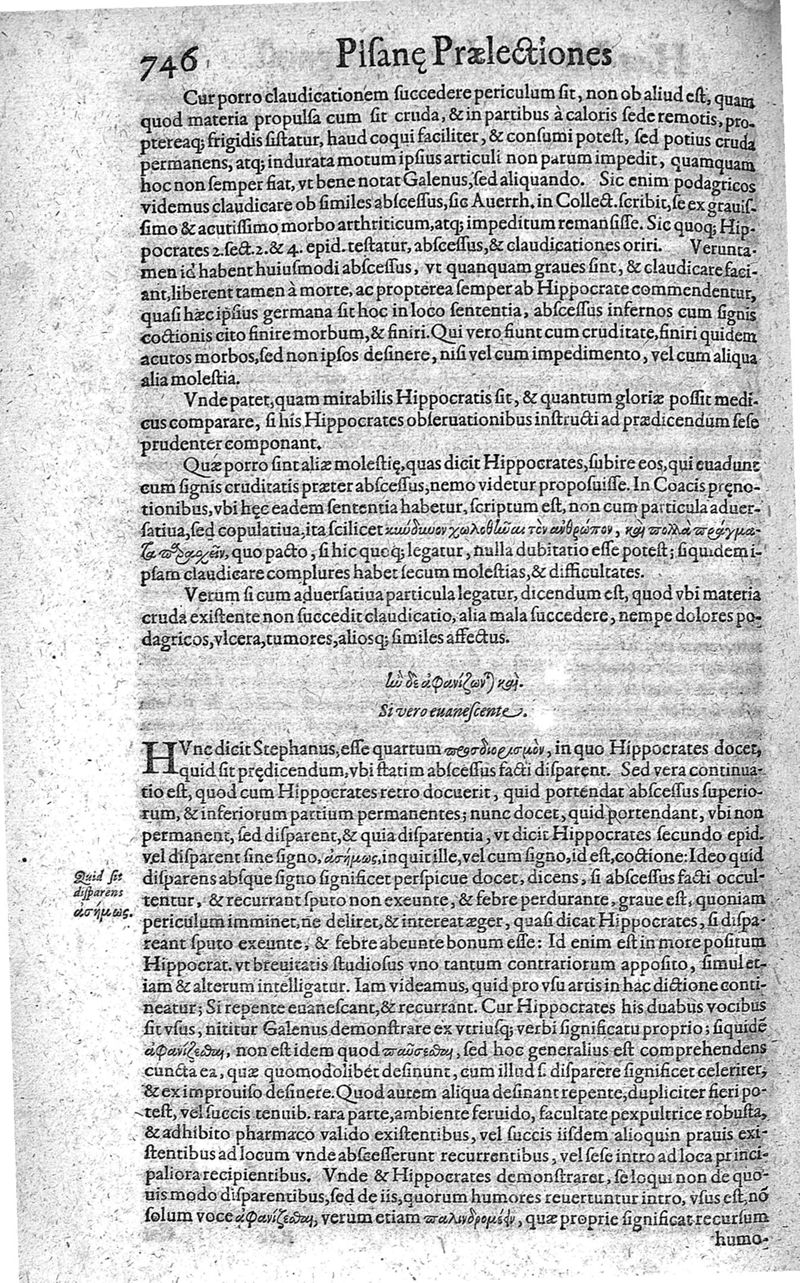 746 Piſanę Prælectiones
Cur porro claudicationem ſuccedere periculum ſit, non ob aliud eſt, quam
quod materia propulſa cum ſit cruda, & in partibus à caloris ſede remotis, pro-
ptereaq; frigidis ſiſtatur, haud coqui faciliter, & conſumi poteſt, ſed potius cruda
permanens, atq; indurata motum ipſius articuli non parum impedit, quamquam
hoc non ſemper fiat, vt bene notat Galenus, ſed aliquando. Sic enim podagricos
videmus claudicare ob ſimiles abſceſſus, ſic Auerrh, in Collect. ſcribit, ſe ex grauiſ-
ſimo & acutiſſimo morbo arthriticum, atq; impeditum remanſiſſe. Sic quoq; Hip-
pocrates 2. ſect. 2. & 4. epid. teſtatur, abſceſſus, & claudicationes oriri. Verunta-
men id habent huiuſmodi abſceſſus, vt quanquam graues ſint, & claudicare faci-
ant, liberent tamen à morte, ac propterea ſemper ab Hippocrate commendentur,
quaſi hæc ipſius germana ſit hoc in loco ſententia, abſceſſus infernos cum ſignis
coctionis cito finire morbum, & finiri. Qui vero fiunt cum cruditate, finiri quidem
acutos morbos, ſed non ipſos deſinere, niſi vel cum impedimento, vel cum aliqua
alia moleſtia.
Vnde patet, quam mirabilis Hippocratis ſit, & quantum gloriæ poſſit medi-
cus comparare, ſi his Hippocrates obſeruationibus inſtructi ad prædicendum ſeſe
prudenter componant.
Quæ porro ſint aliæ moleſtię, quas dicit Hippocrates, ſubire eos, qui euadunt
cum ſignis cruditatis præter abſceſſus, nemo videtur propoſuiſſe. In Coacis pręno-
tionibus, vbi hęc eadem ſententia habetur, ſcriptum eſt, non cum particula aduer-
ſatiua, ſed copulatiua, ita ſcilicet κίνδυνον χωλωθῆναι τὸν ἄνθρωπον, καὶ πολλὰ πράγμα-
τα παρασχεῖν, quo pacto, ſi hic quoq; legatur, nulla dubitatio eſſe poteſt; ſiquidem i-
pſam claudicare complures habet ſecum moleſtias, & difficultates.
Verum ſi cum aduerſatiua particula legatur, dicendum eſt, quod vbi materia
cruda exiſtente non ſuccedit claudicatio, alia mala ſuccedere, nempe dolores po-
dagricos, vlcera, tumores, alioſq; ſimiles affectus.
ἢν δὲ ἀφανίζωνται καὶ.
Si vero euaneſcente.
HVnc dicit Stephanus, eſſe quartum προσδιορισμὸν, in quo Hippocrates docet,
quid ſit prędicendum, vbi ſtatim abſceſſus facti diſparent. Sed vera continua-
tio eſt, quod cum Hippocrates retro docuerit, quid portendat abſceſſus ſuperio-
rum, & inferiorum partium permanentes; nunc docet, quid portendant, vbi non
permanent, ſed diſparent, & quia diſparentia, vt dicit Hippocrates ſecundo epid.
vel diſparent ſine ſigno, ἀσήμως, inquit ille, vel cum ſigno, id eſt, coctione: Ideo quid
Quid ſit
diſparens
ἀσήμως.
diſparens abſque ſigno ſignificet perſpicue docet, dicens, ſi abſceſſus facti occul-
tentur, & recurrant ſputo non exeunte, & febre perdurante, graue eſt, quoniam
periculum imminet, ne deliret, & intereat æger, quaſi dicat Hippocrates, ſi diſpa-
reant ſputo exeunte, & febre abeunte bonum eſſe: Id enim eſt in more poſitum
Hippocrat. vt breuitatis ſtudioſus vno tantum contrariorum appoſito, ſimul et-
iam & alterum intelligatur. Iam videamus, quid pro vſu artis in hac dictione conti-
neatur; Si repente euaneſcant, & recurrant. Cur Hippocrates his duabus vocibus
ſit vſus, nititur Galenus demonſtrare ex vtriuſq; verbi ſignificatu proprio; ſiquidē
ἀφανίζεσθαι, non eſt idem quod παύσεσθαι, ſed hoc generalius eſt comprehendens
cuncta ea, quæ quomodolibet deſinunt, cum illud ſ. diſparere ſignificet celeriter,
& ex improuiſo deſinere. Quod autem aliqua deſinant repente, dupliciter fieri po-
teſt, vel ſuccis tenuib. rara parte, ambiente feruido, facultate pexpultrice robuſta,
& adhibito pharmaco valido exiſtentibus, vel ſuccis iiſdem alioquin prauis exi-
ſtentibus ad locum vnde abſceſſerunt recurrentibus, vel ſeſe intro ad loca princi-
paliora recipientibus. Vnde & Hippocrates demonſtraret, ſe loqui non de quo-
uis modo diſparentibus, ſed de iis, quorum humores reuertuntur intro, vſus eſt, nō
ſolum voce ἀφανίζεσθαι, verum etiam παλινδρομέειν, quæ proprie ſignificat recurſum
humo-